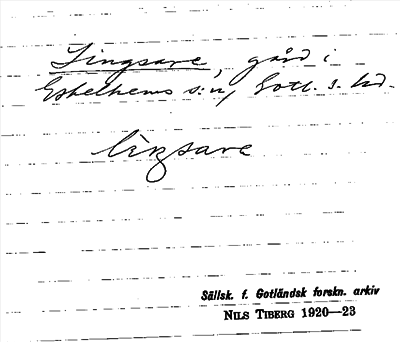 Lingsare, gård i
Eskelhems s:n, Gotl. s. hd.
liŋsare
Sällsk. f. Gotländsk forskn. arkiv
NILS TIBERG 1920—23